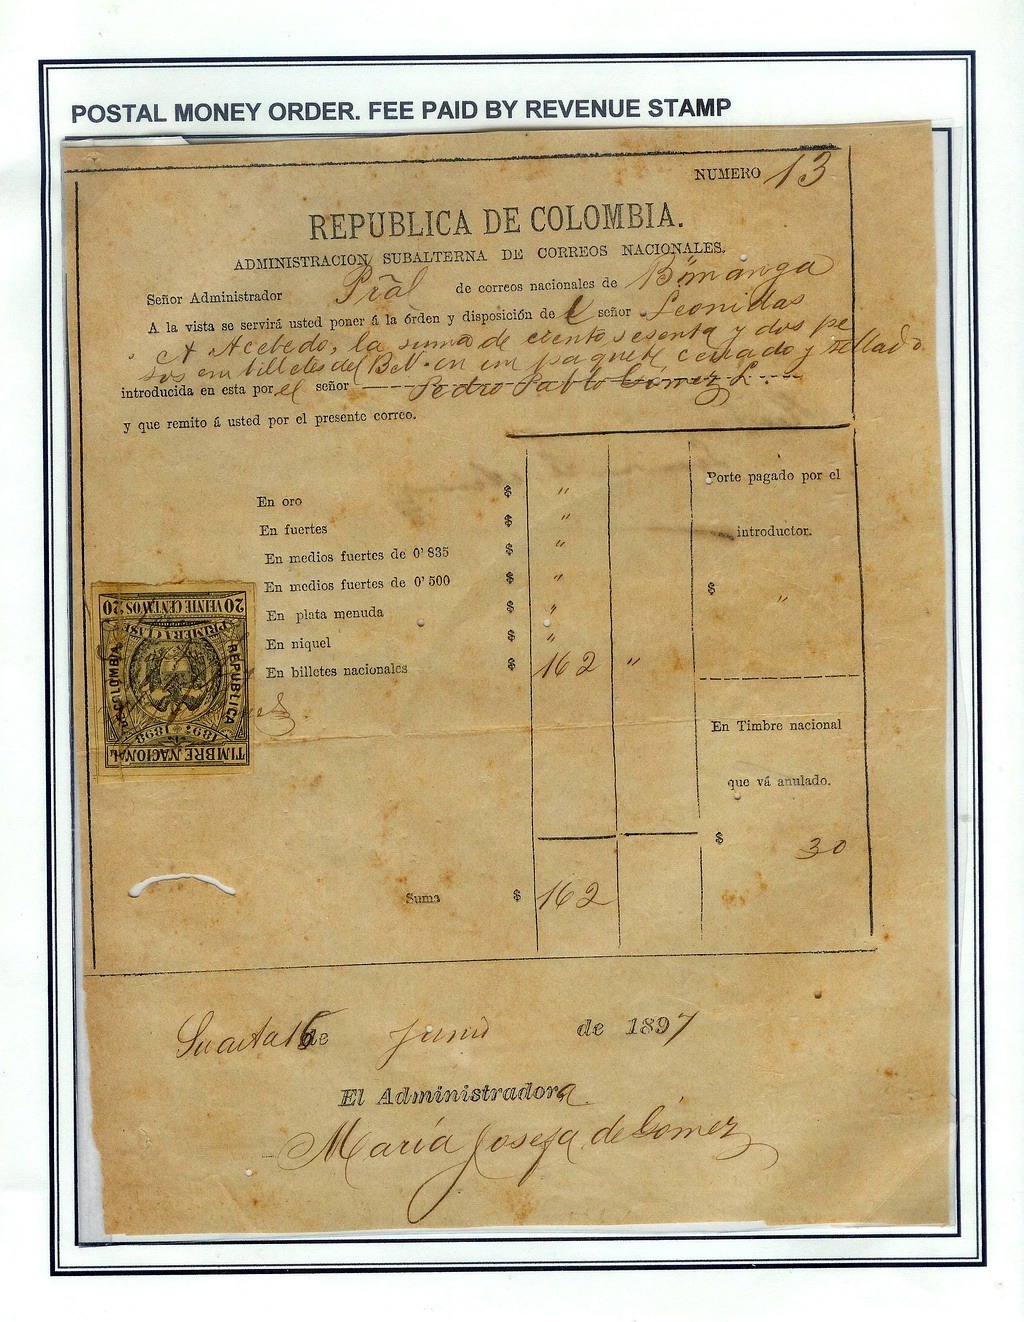 POSTAL MONEY ORDER. FEE PAID BY REVENUE STAMP
NUMERO 13
REPUBLICA DE COLOMBIA.
ADMINISTRACION SUBALTERNA DE CORREOS NACIONALES.
Señor Administrador Pràl de correos nacionales de B/manga
A la vista se servirá usted poner á la órden y disposición de l señor Leonidas
A Acebedo, la suma de ciento sesenta y dos pe
sos en billetes del B.N. en un paquete cerrado y sellado
introducida en esta por el señor Pedro Pablo Gómez L.
y que remito á usted por el presente correo.
Porte pagado por el
introductor.
$ "
En oro $ "
En fuertes $ "
En medios fuertes de 0'835 $ "
En medios fuertes de 0'500 $ "
En plata menuda $ "
En niquel $ "
En billetes nacionales $ 162 "
En Timbre nacional
que vá anulado.
$ 30
Suma $ 162
TIMBRE NACIONAL
1895 1898
REPUBLICA
DE COLOMBIA
PRIMERA CLASE
20 VEINTE CENTAVOS 20
Suaita 15 de Junio de 1897
El Administradora
María Josefa de Gómez